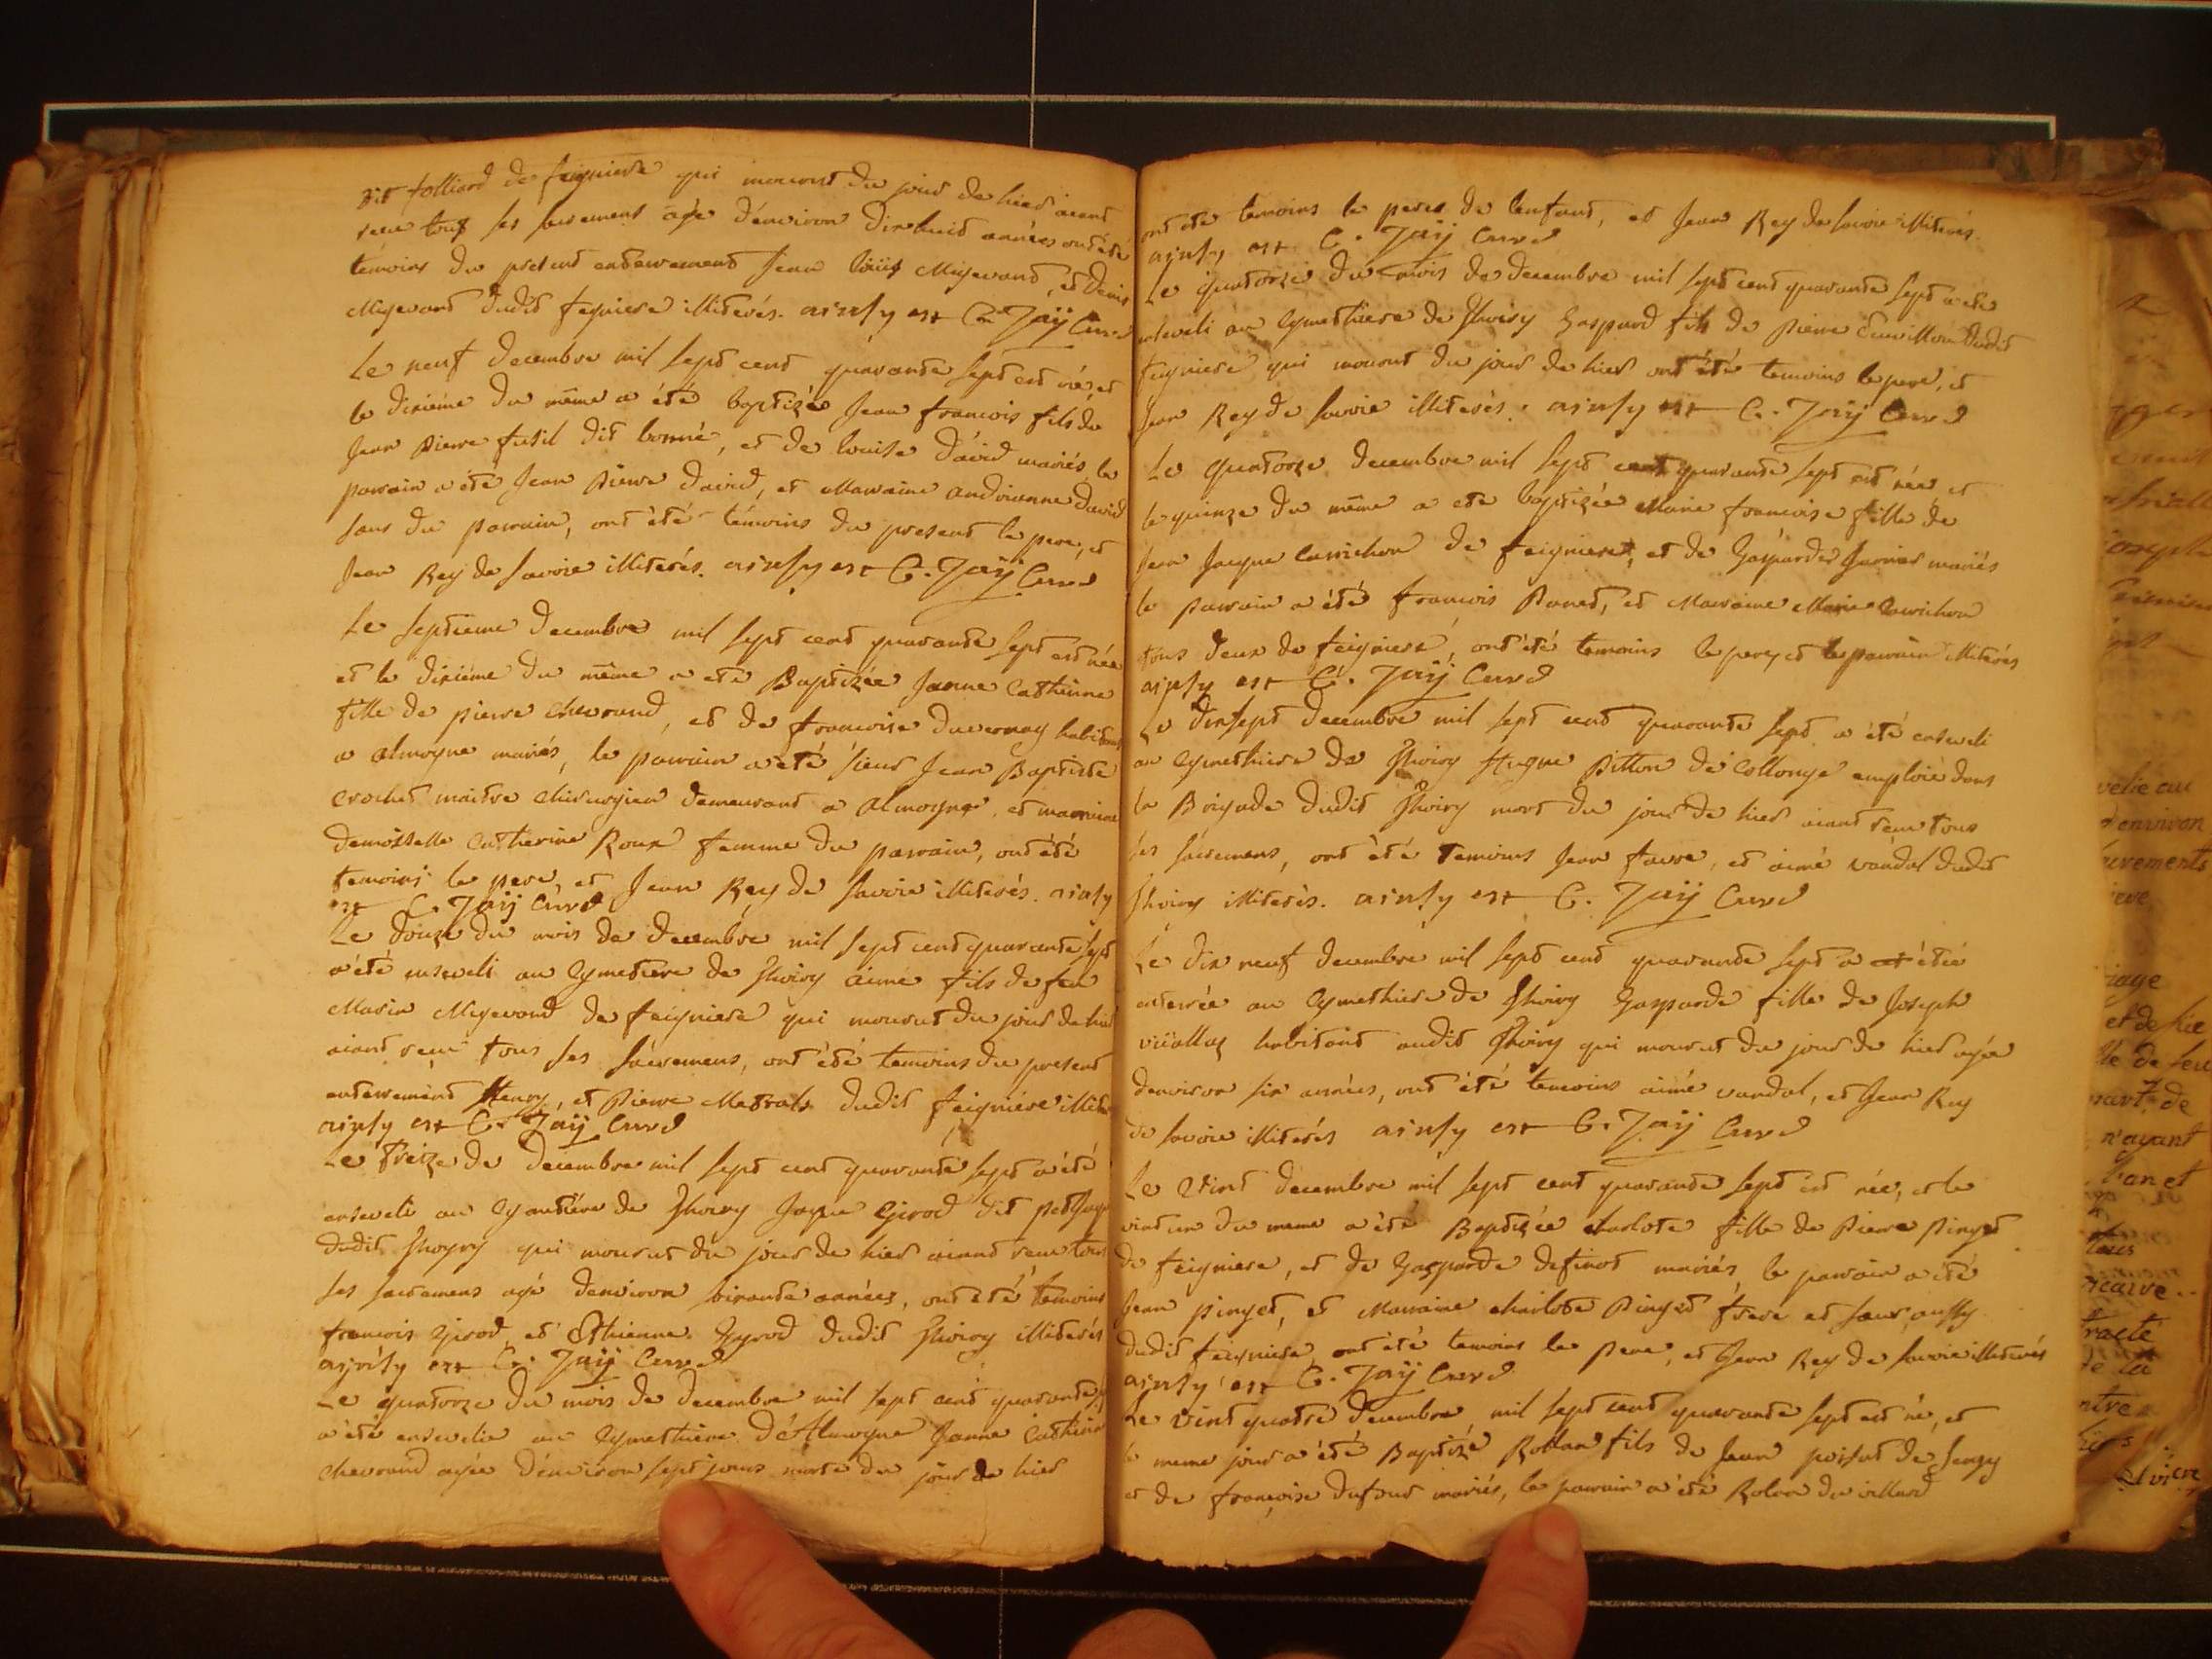 dit folliard de feigniere qui mourut du jour de hier aiant
receu tous ses sacremens age d'environ dixhuit années ont été
témoins du présent enterrement Jean loüis Migevand, et denis
Migevand dudit feigniere illiterés. ainsy est C. Jaÿ Curé
Le neuf decembre mil sept cent quarante sept est né et
le dixiéme du même a été baptizé Jean francois fils de
Jean Pierre fusil dit bonné, et de louise david mariés, le
parrain a été Jean Pierre david, et Marraine andrianne david
sœur du parrain, ont été témoins du present le pere, et
Jean Rey de savoie illiterés. ainsy est C. Jaÿ Curé
Le septieme decembre mil sept cent quarante sept est née
et le dixiéme du même a été Baptizée Janne Catherine
fille de pierre chevrand, et de francoise duvernay habitants
a almogne mariés, le parrain a été sieur Jean Baptiste
crochet maitre chirurgien demeurant a almogne, et marraine
demoiselle Catherine Roux femme du parrain, ont été
temoins le pere, et Jean Rey de savoie illiterés. ainsy
est C. Jaÿ Curé
Le douze du mois de decembre mil sept cent quarante sept
a été enseveli au Cymetiere de Thoiry aimé fils de feu
Marin Migevand de feigniere qui mourut du jour de hier
aiant receu tous ses sacremens, ont été temoins du present
enterrement Henry, et Pierre Matrals dudit feigniere
ainsy est C. Jaÿ Curé
Le treize de decembre mil sept cent quarante sept a été
enseveli au Cymetiére de Thoiry Jaque Girod dit
dudit Thoyry qui mourut du jour de hier aiant receu tous
ses sacremens agé d'environ soixante années, ont été temoins
francois Girod, et Ethienne Gyrod dudit Thoiry illiterés
ainsy est C. Jaÿ Curé
Le quatorze du mois de decembre mil sept cent quarante
a été ensevelie au Cymethiere d'Almogne Janne Catherine
chevrand agée d'environ sept jours morte du jour de hier
ont été temoins le pere de l'enfant, et Jean Rey de savoie illiterés
ainsy est C. Jaÿ Curé
Le quatorze du mois de decembre mil sept cent quarante sept a été
enseveli au Cymethiere de Thoiry Gaspard fils de Pierre dudit
feigniere qui mourut du jour de hier ont été temoins le pere, et
Jean Rey de savoie illiterés. ainsy est C. Jaÿ Curé
Le quatorze decembre mil sept cent quarante sept est née et
le quinze du même a été baptizée Marie francoise fille de
Jean Jaque Carrichon de feigniere, et de Gasparde Garnier mariés
le parrain a été francois Panet, et Marraine Marie Carrichon
tous deux de feigniere, ont été temoins le pere, et le parrain illiterés
ainsy est C. Jaÿ Curé
Le dixsept decembre mil sept cent quarante sept a été enseveli
au Cymethiere de Thoiry Hugue Pitton de Collonge emploié dans
la Brigade dudit Thoiry mort du jour de hier aiant receu tous
ses sacremens, ont été temoins Jean favre, et aimé vandal dudit
Thoiry illiterés. ainsy est C. Jaÿ Curé
Le dix neuf decembre mil sept cent quarante sept a et étée
enterrée au Cymethiere de Thoiry Gasparde fille de Joseph
habitant audit Thoiry qui mourut du jour de hier agée
d'environ six années, ont été temoins aimé vandal, et Jean Rey
de savoie illiterés ainsy est C. Jaÿ Curé
Le vint decembre mil sept cent quarante sept est née, et le
vintun du meme a été Baptizée charlote fille de Pierre Pinget
de feigniere, et de Gasparde definot mariés, le parrain a été
Jean pinget, et Marraine charlote Pinget frere et sœur aussy
dudit feigniere ont été temoins le Pere, et Jean Rey de savoie illiterés
ainsy est C. Jaÿ Curé
Le vint quatre decembre mil sept cent quarante sept est né, et
le meme jour a été Baptizé Rollan fils de Jean poisat de Sergy
et de françoise dufour mariés, le parrain a été Rolan du villard